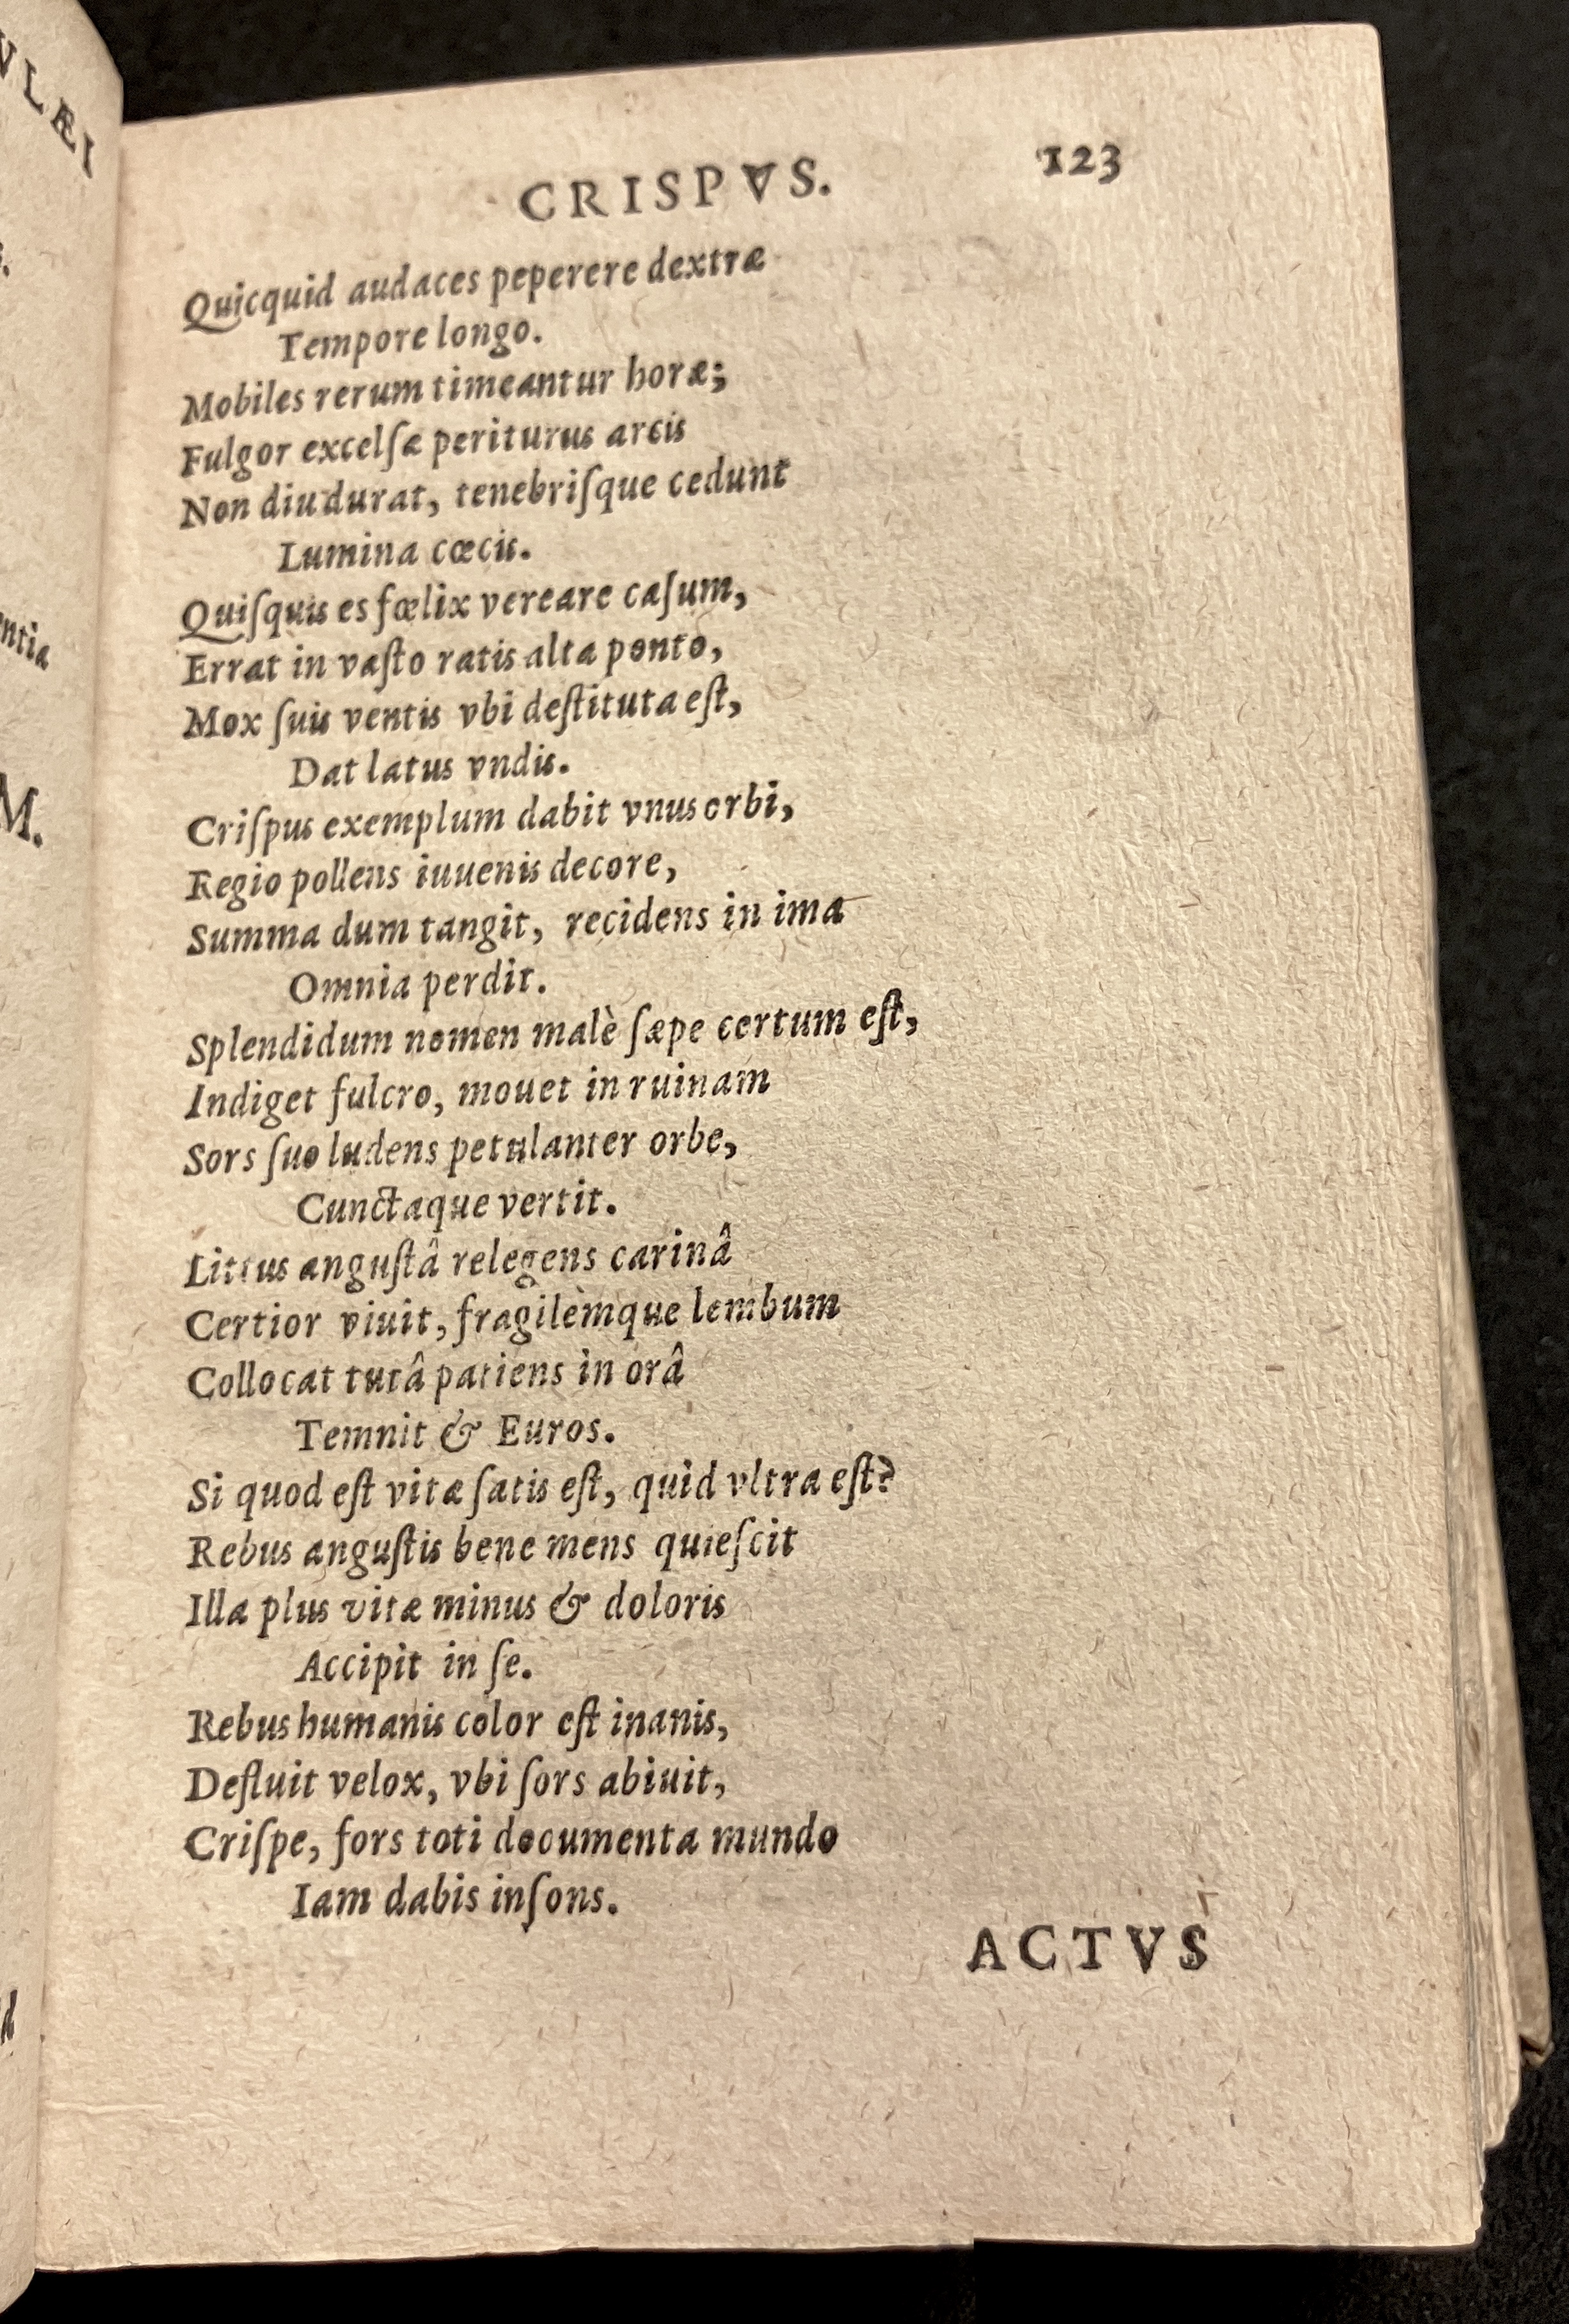 VLÆI
ntia
M.
CRISPVS. 123
Quicquid audaces peperere dextræ
Tempore longo.
Mobiles rerum timeantur horæ;
Fulgor excelſæ periturus arcis
Non diu durat, tenebriſque cedunt
Lumina cœcis.
Quiſquis es fœlix vereare caſum,
Errat in vaſto ratis alta ponto,
Mox ſuis ventis vbi deſtituta eſt,
Dat latus vndis.
Criſpus exemplum dabit vnus orbi,
Regio pollens iuuenis decore,
Summa dum tangit, recidens in ima
Omnia perdit.
Splendidum nomen malè ſæpe certum eſt,
Indiget fulcro, mouet in ruinam
Sors ſuo ludens petulanter orbe,
Cunctaque vertit.
Littus anguſtâ relegens carinâ
Certior viuit, fragilèmque lembum
Collocat tutâ patiens in orâ
Temnit & Euros.
Si quod eſt vitæ ſatis eſt, quid vltra eſt?
Rebus anguſtis bene mens quieſcit
Illa plus vitæ minus & doloris
Accipit in ſe.
Rebus humanis color eſt inanis,
Defluit velox, vbi ſors abiuit,
Criſpe, fors toti documenta mundo
Iam dabis inſons.
ACTVS